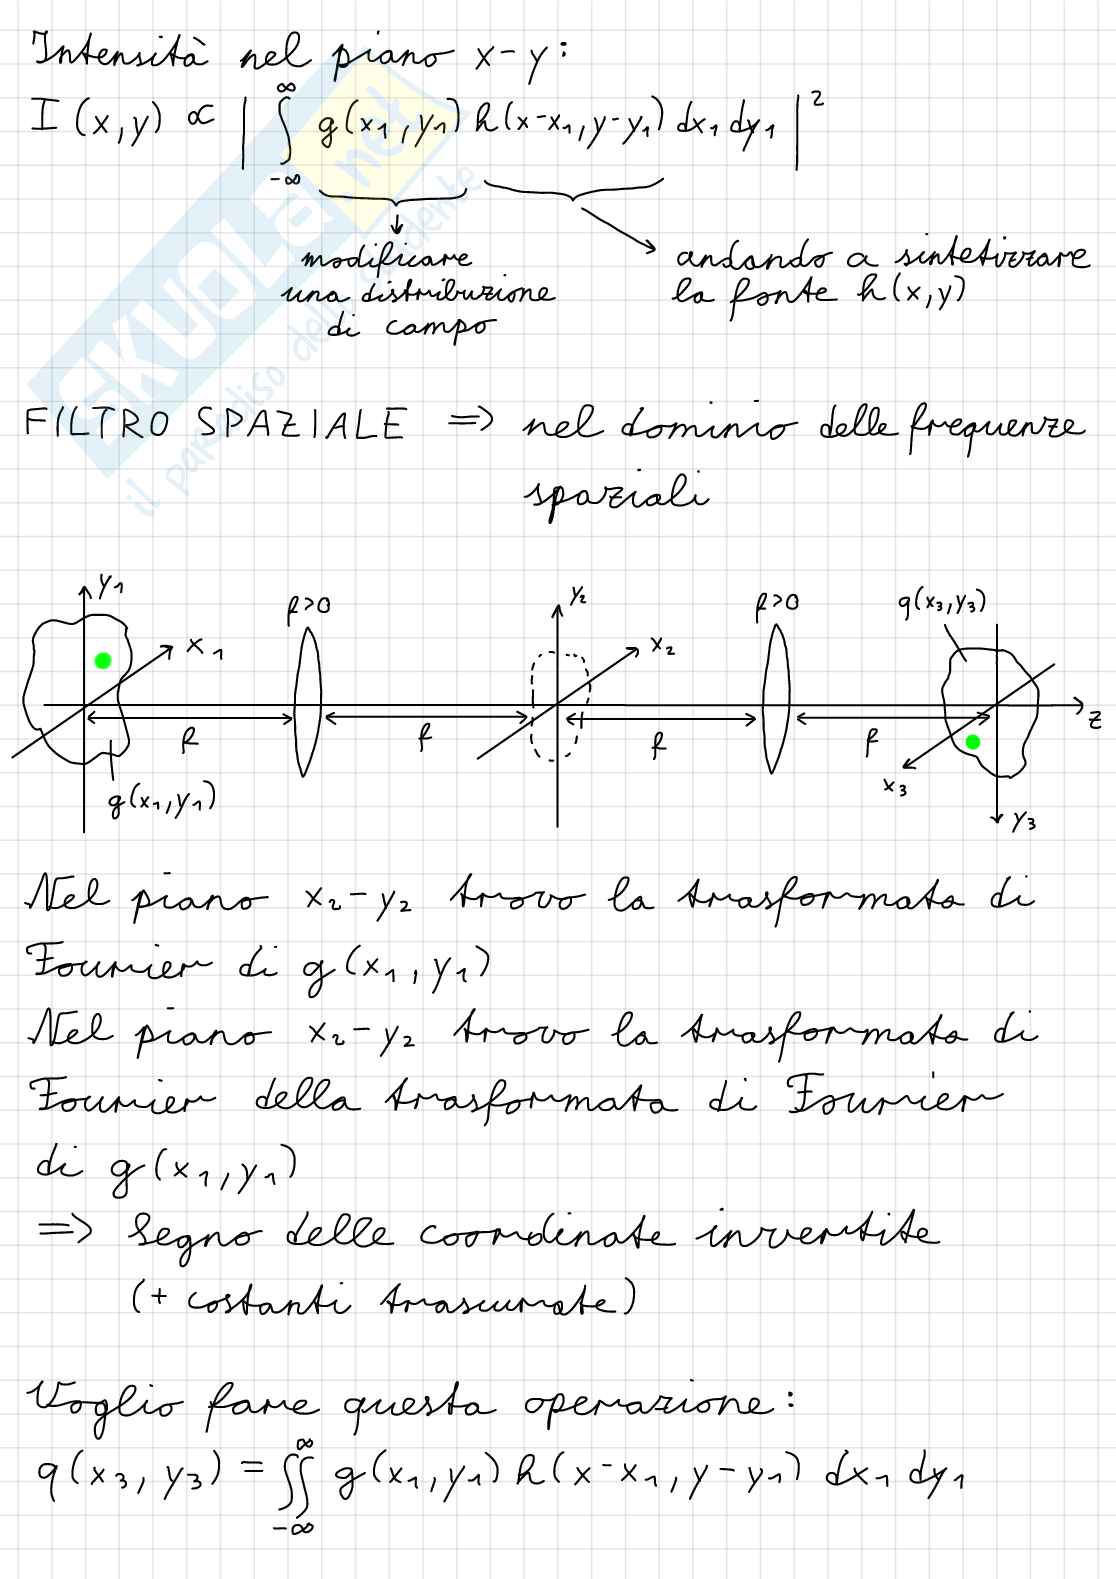 Intensità nel piano x-y:
I(x,y) ∝ | ∫ g(x₁,y₁) h(x-x₁,y-y₁) dx₁ dy₁ |²
∞
-∞
modificare
una distribuzione
di campo
andando a sintetizzare
la fonte h(x,y)
SKUOLA.net
il paradiso dello studente
FILTRO SPAZIALE ⇒ nel dominio delle frequenze
spaziali
y₁
x₁
f>0
y₂
x₂
f>0
g(x₃,y₃)
z
f
f
f
f
g(x₁,y₁)
x₃
y₃
Nel piano x₂-y₂ trovo la trasformata di
Fourier di g(x₁,y₁)
Nel piano x₂-y₂ trovo la trasformata di
Fourier della trasformata di Fourier
di g(x₁,y₁)
⇒ segno delle coordinate invertite
(+ costanti trascurate)
Voglio fare questa operazione:
q(x₃,y₃) = ∬ g(x₁,y₁) h(x-x₁,y-y₁) dx₁ dy₁
∞
-∞